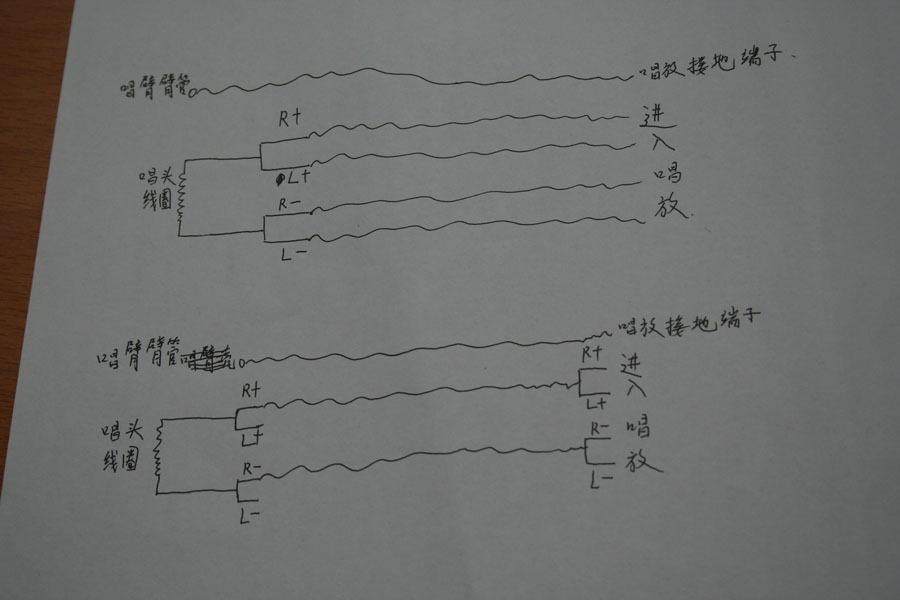 唱臂臂管 唱放接地端子.
R+ 进
L+ 入
唱头
线圈
R- 唱
L- 放.
唱臂臂管 唱放接地端子
R+ R+ 进
L+ L+ 入
唱头
线圈
R- R- 唱
L- L- 放